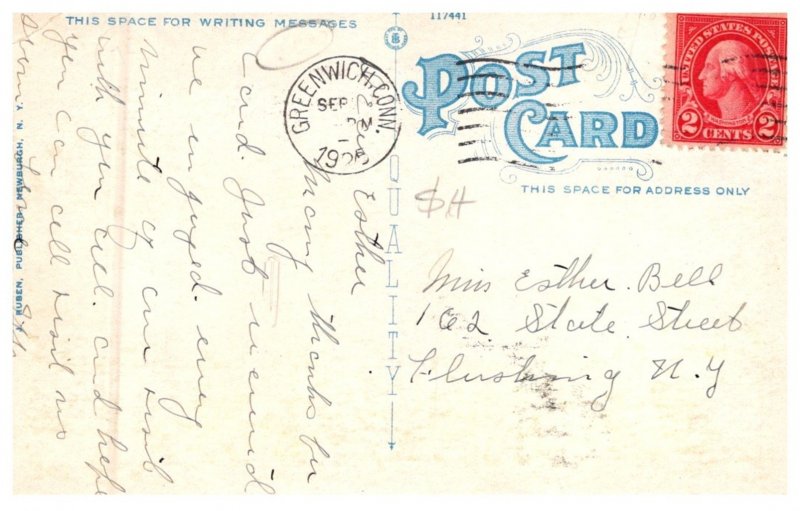 THIS SPACE FOR WRITING MESSAGES
117441
POST
CARD
UNITED STATES POSTAGE
WASHINGTON
2 CENTS 2
GREENWICH, CONN.
SEP
PM
1926
QUALITY
THIS SPACE FOR ADDRESS ONLY
$4
Esther
Many thanks for
Card. Just received
we enjoyed. every
minute of our visit
with you all. and hope
you can all visit us
soon
Miss Esther. Bell
162 State. Street
Flushing N. Y
RUBEN, PUBLISHER, NEWBURGH, N. Y.